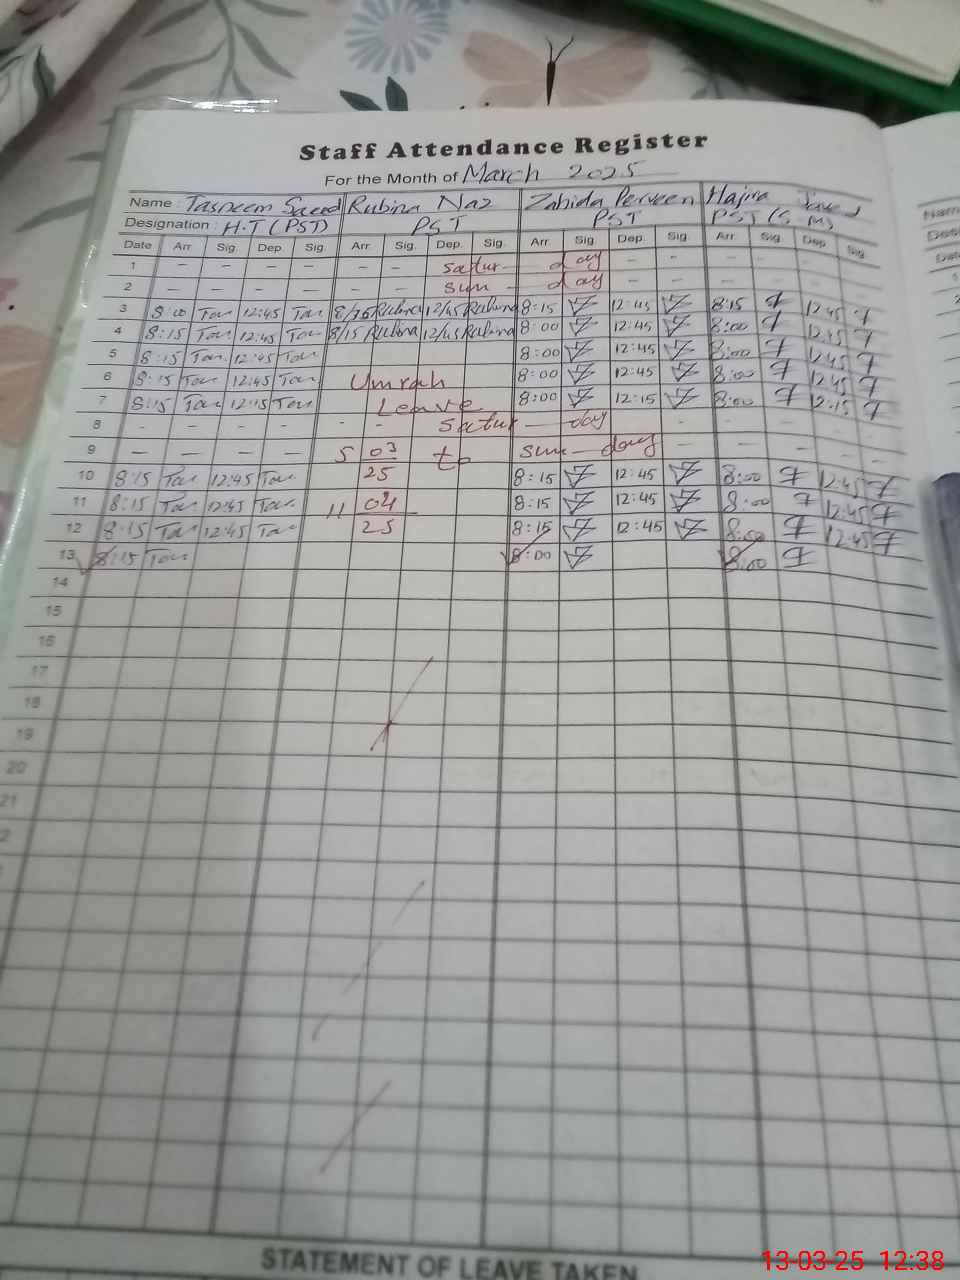 Staff Attendance Register
For the Month of March 2025
Name : Tasneem Saeed Rubina Naz Zahida Perveen Hajira Javed
Designation : H.T (PST) PST PST PST (S.M)
Date Arr Sig. Dep Sig. Arr. Sig. Dep. Sig. Arr. Sig. Dep. Sig. Arr. Sig Dep Sig
1 - - - - - - Satur - day - -
2 - - - - - - Sun - day - -
3 8:00 12:45 8/15 Rubina 12/45 Rubina 8:15 12:45 8:15 12:45
4 8:15 12:45 8/15 Rubina 12/45 Rubina 8:00 12:45 8:00 12:45
5 8:15 12:45 8:00 12:45 8:00 12:45
6 8:15 12:45 Umrah 8:00 12:45 8:00 12:45
7 8:15 12:15 Leave 8:00 12:15 8:00 12:15
8 - - - - - - Satur - day - - - - - -
9 - - - - 5 03 to Sun - day - - - - - -
10 8:15 12:45 25 8:15 12:45 8:00 12:45
11 8:15 12:45 11 04 8:15 12:45 8:00 12:45
12 8:15 12:45 25 8:15 12:45 8:00 12:45
13 8:15 8:00 8:00
14
15
16
17
18
19
20
21
STATEMENT OF LEAVE TAKEN
13-03-25 12:38